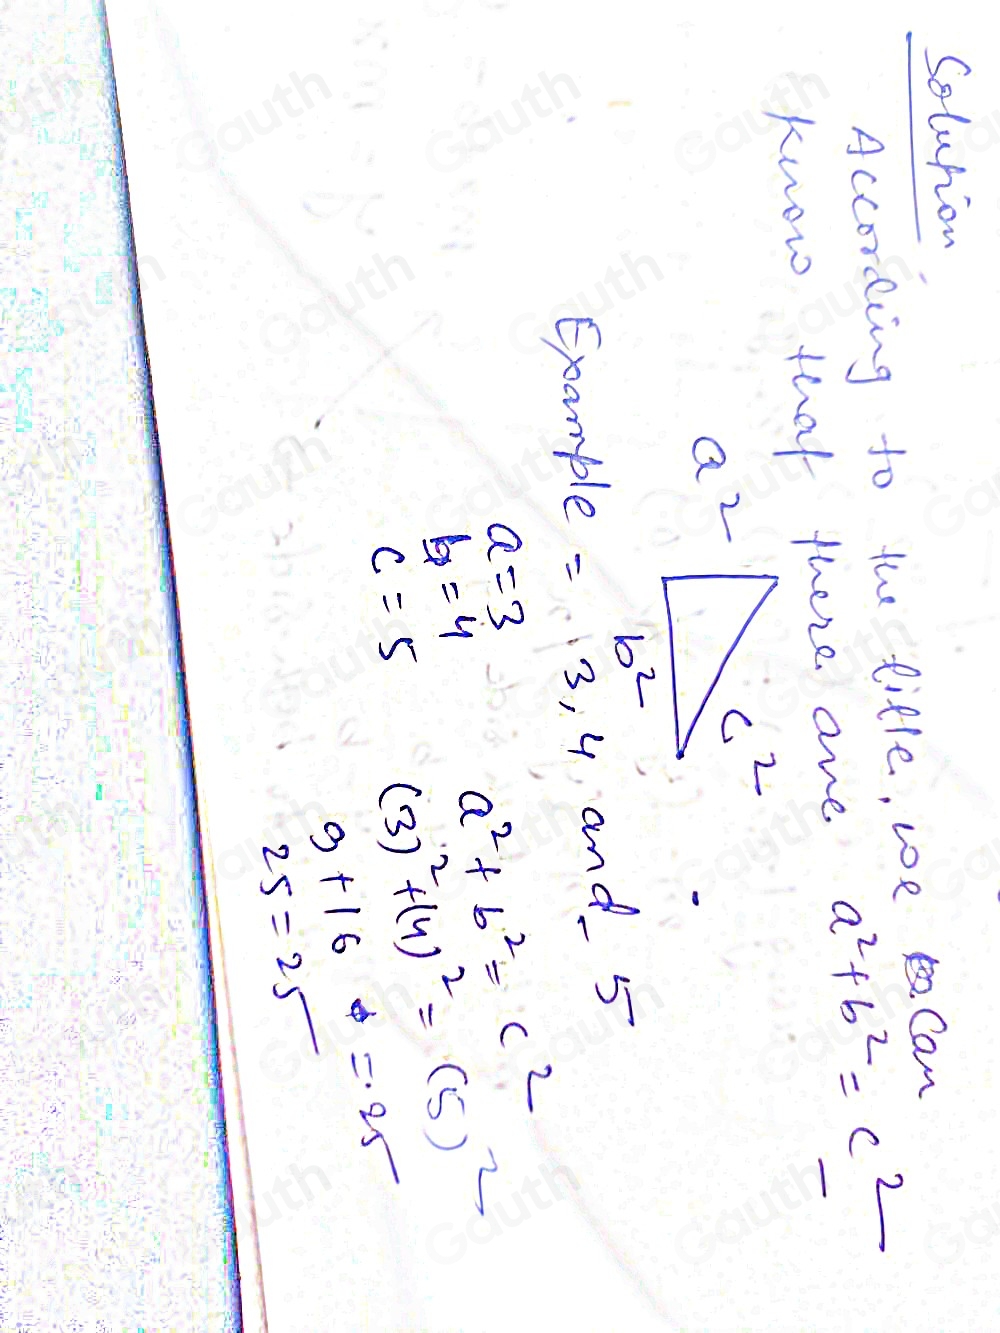 Solution
According to the title, we can
know that there are a²+b²=c²
a²
c²
b²
Example = 3, 4 and 5
a=3
b=4
c=5
a²+b²=c²
(3)²+(4)²=(5)²
9+16 =25
25=25